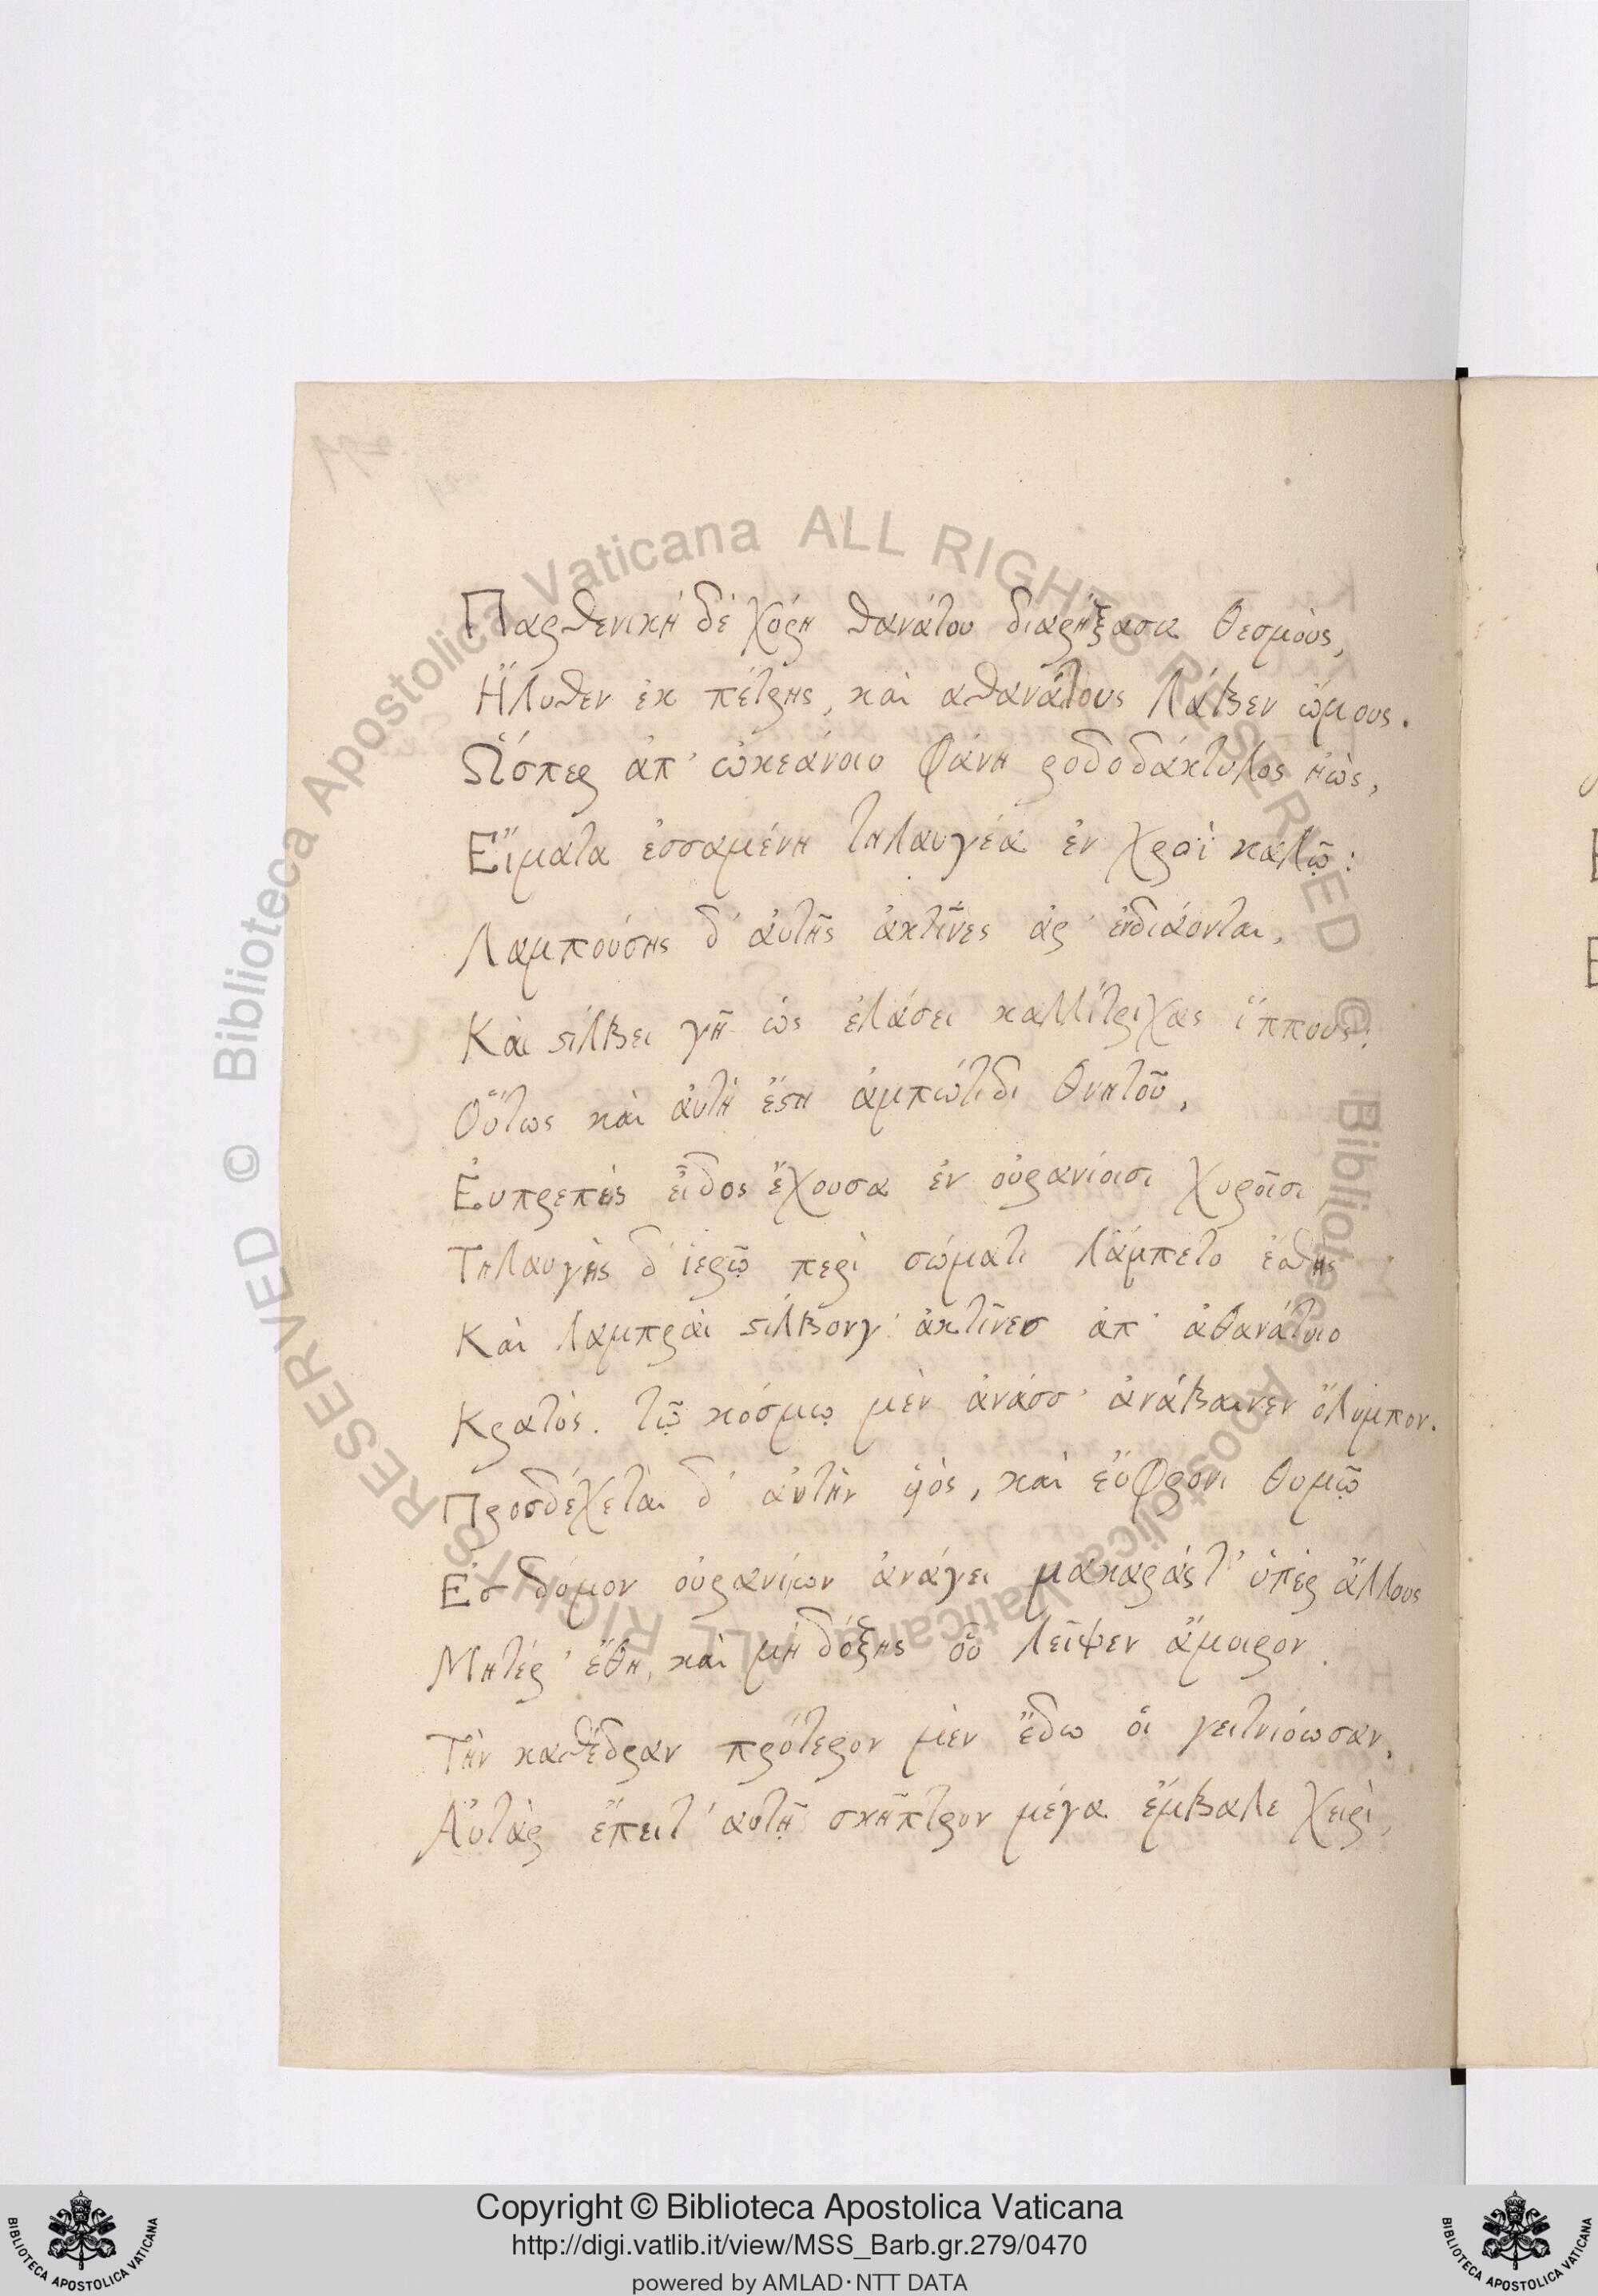 Παρθενικὴ δὲ χόρη θανάτου διαρήξασα θεσμὸυς,
Ἤλυθεν ἐκ πέτρης, κὰι αθανάτους λάβεν ὤμους.
Ὥσπερ ἀπ' ὠκεάνοιο φάνη ροδοδάκτυλος ἠὼς,
Εἵματα ἑσσαμένη τηλαυγέα ἐν χροῒ καλῷ:
Λαμπούσης δ' ἀυτῆς ἀκτῖνες ἀρ' ἐνδιάονται,
Κὰι στίλβει γῆ ὡς ἐλάσει καλλίτριχας ἵππους:
Οὕτως κὰι ἀυτὴ ἔστη ἀμπώτιδι θνητοῦ,
Ἐυπρεπὲς εἶδος ἔχουσα ἐν οὐρανίοισι χυροῖσι
Τηλαυγὴς δ' ἱερῷ περὶ σώματι λάμπετο ἐσθὴς
Κὰι λαμπρὰι στίλβονγ' ἀκτῖνεσ ἀπ' ἀθανάτοιο
Κρατὸς. τῷ κόσμῳ μὲν ἀνάσσ' ἀνάβαινεν ὄλυμπον.
Προσδέχεται δ' ἀυτὴν ὑὸς, κὰι ἐύφρονι θυμῷ
Ἐσ δόμον οὐρανίων ἀνάγει μακαράς τ' ὑπὲρ ἄλλους
Μητέρ' ἔθη, κὰι μὴ δόξης οὗ λεῖψεν ἄμοιρον.
Τὴν καθέδραν πρότερον μὲν ἔδω οἱ γειτνιόωσαν,
Ἀυτὰρ ἔπειτ' αυτῇ σκῆπτρον μέγα ἔμβαλε χειρὶ,
Copyright © Biblioteca Apostolica Vaticana
http://digi.vatlib.it/view/MSS_Barb.gr.279/0470
powered by AMLAD·NTT DATA